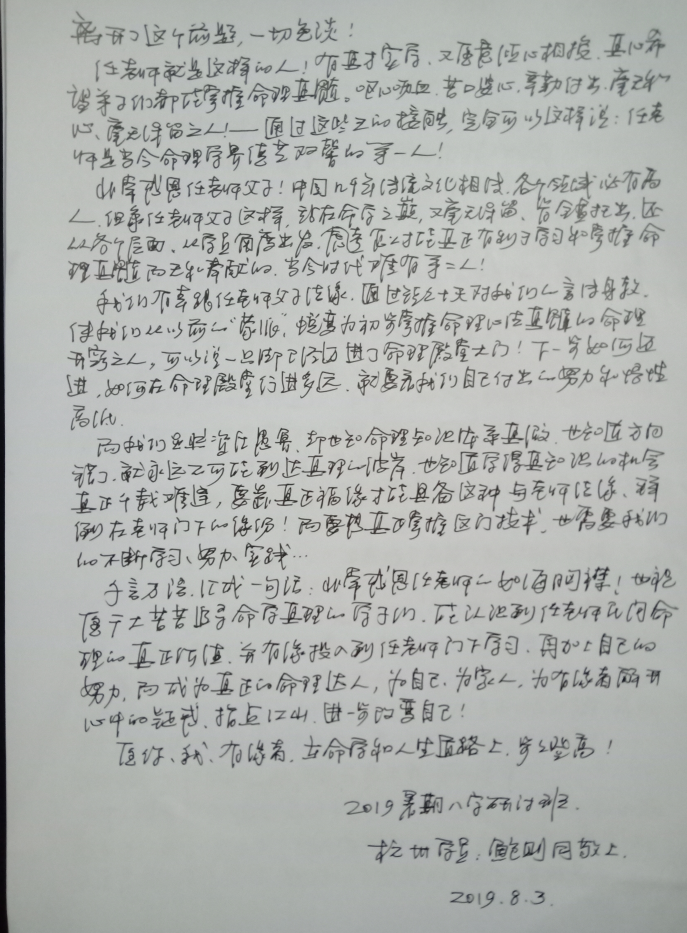 离开了这个前题，一切免谈！
任老师就是这样的人！有真才实学，又愿意倾心相授，真心希
望弟子们都能掌握命理真髓。呕心沥血，苦口婆心，辛勤付出，毫无私
心、毫无保留之人！——通过这些天的接触，完全可以这样说：任老
师是当今命理学界德艺双馨的第一人！
非常感恩任老师父子！中国几千年传统文化相传，各个领域必有高
人，但象任老师父子这样，站在命学之巅，又毫无保留、皆全盘托出，还
从各个层面、从学员角度出发，考虑怎么才能真正有利于学习和掌握命
理真髓而无私奉献的，当今时代难有第二人！
我们有幸跟任老师父子结缘，通过这十天对我们的言传身教，
使我们从以前的“蒙派”，蜕变为初步掌握命理心法真髓的命理
行家之人，可以说一只脚已经迈进了命理殿堂大门！下一步如何迈
进，如何在命理殿堂行进多远，就要看我们自己付出的努力和悟性
高低。
而我们虽然资任愚鲁，却也知命理知识体系真假，也知道方向
错了，就永远不可能到达真理的彼岸，也知道学得真知识的机会
真正千载难逢，要靠真正福缘才能具备这种与老师结缘、拜
倒在老师门下的缘份！而要想真正掌握这门技术，也需要我们
的不断学习、努力、实践…
千言万语，汇成一句话：非常感恩任老师的如海师恩！也祝
愿千千万万苦苦追寻命学真理的学子们，能认识到任老师民间命
理的真正价值，并有缘投入到任老师门下学习，再加上自己的
努力，而成为真正的命理达人，为自己、为家人、为有缘者解开
心中的疑惑、指点江山，进一步改变自己！
愿你、我、有缘者，在命学和人生道路上，步步登高！
2019暑期八字研讨班．
杭州学员：鲍则同敬上．
2019.8.3.